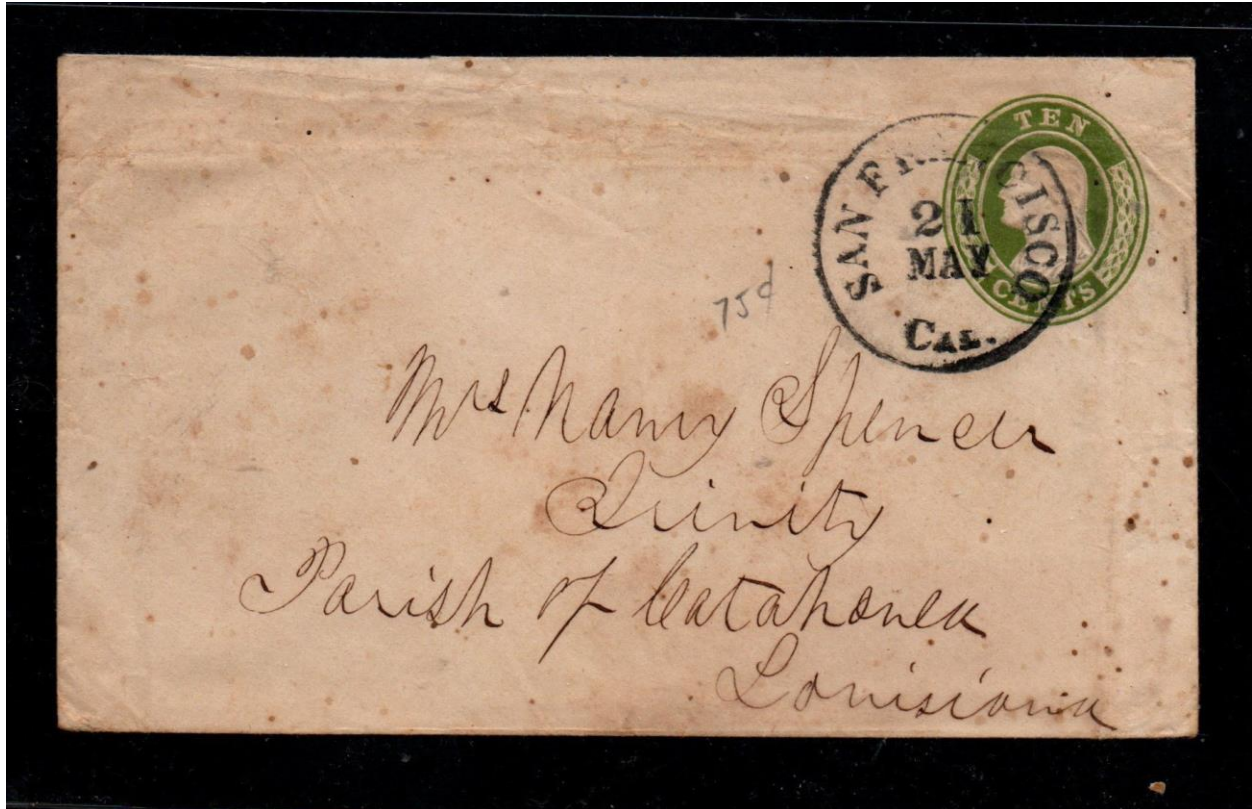 TEN
CENTS
SAN FRANCISCO
21
MAY
CAL.
75¢
Mrs Nancy Spencer
Trinity
Parish of Catahoula
Louisiana